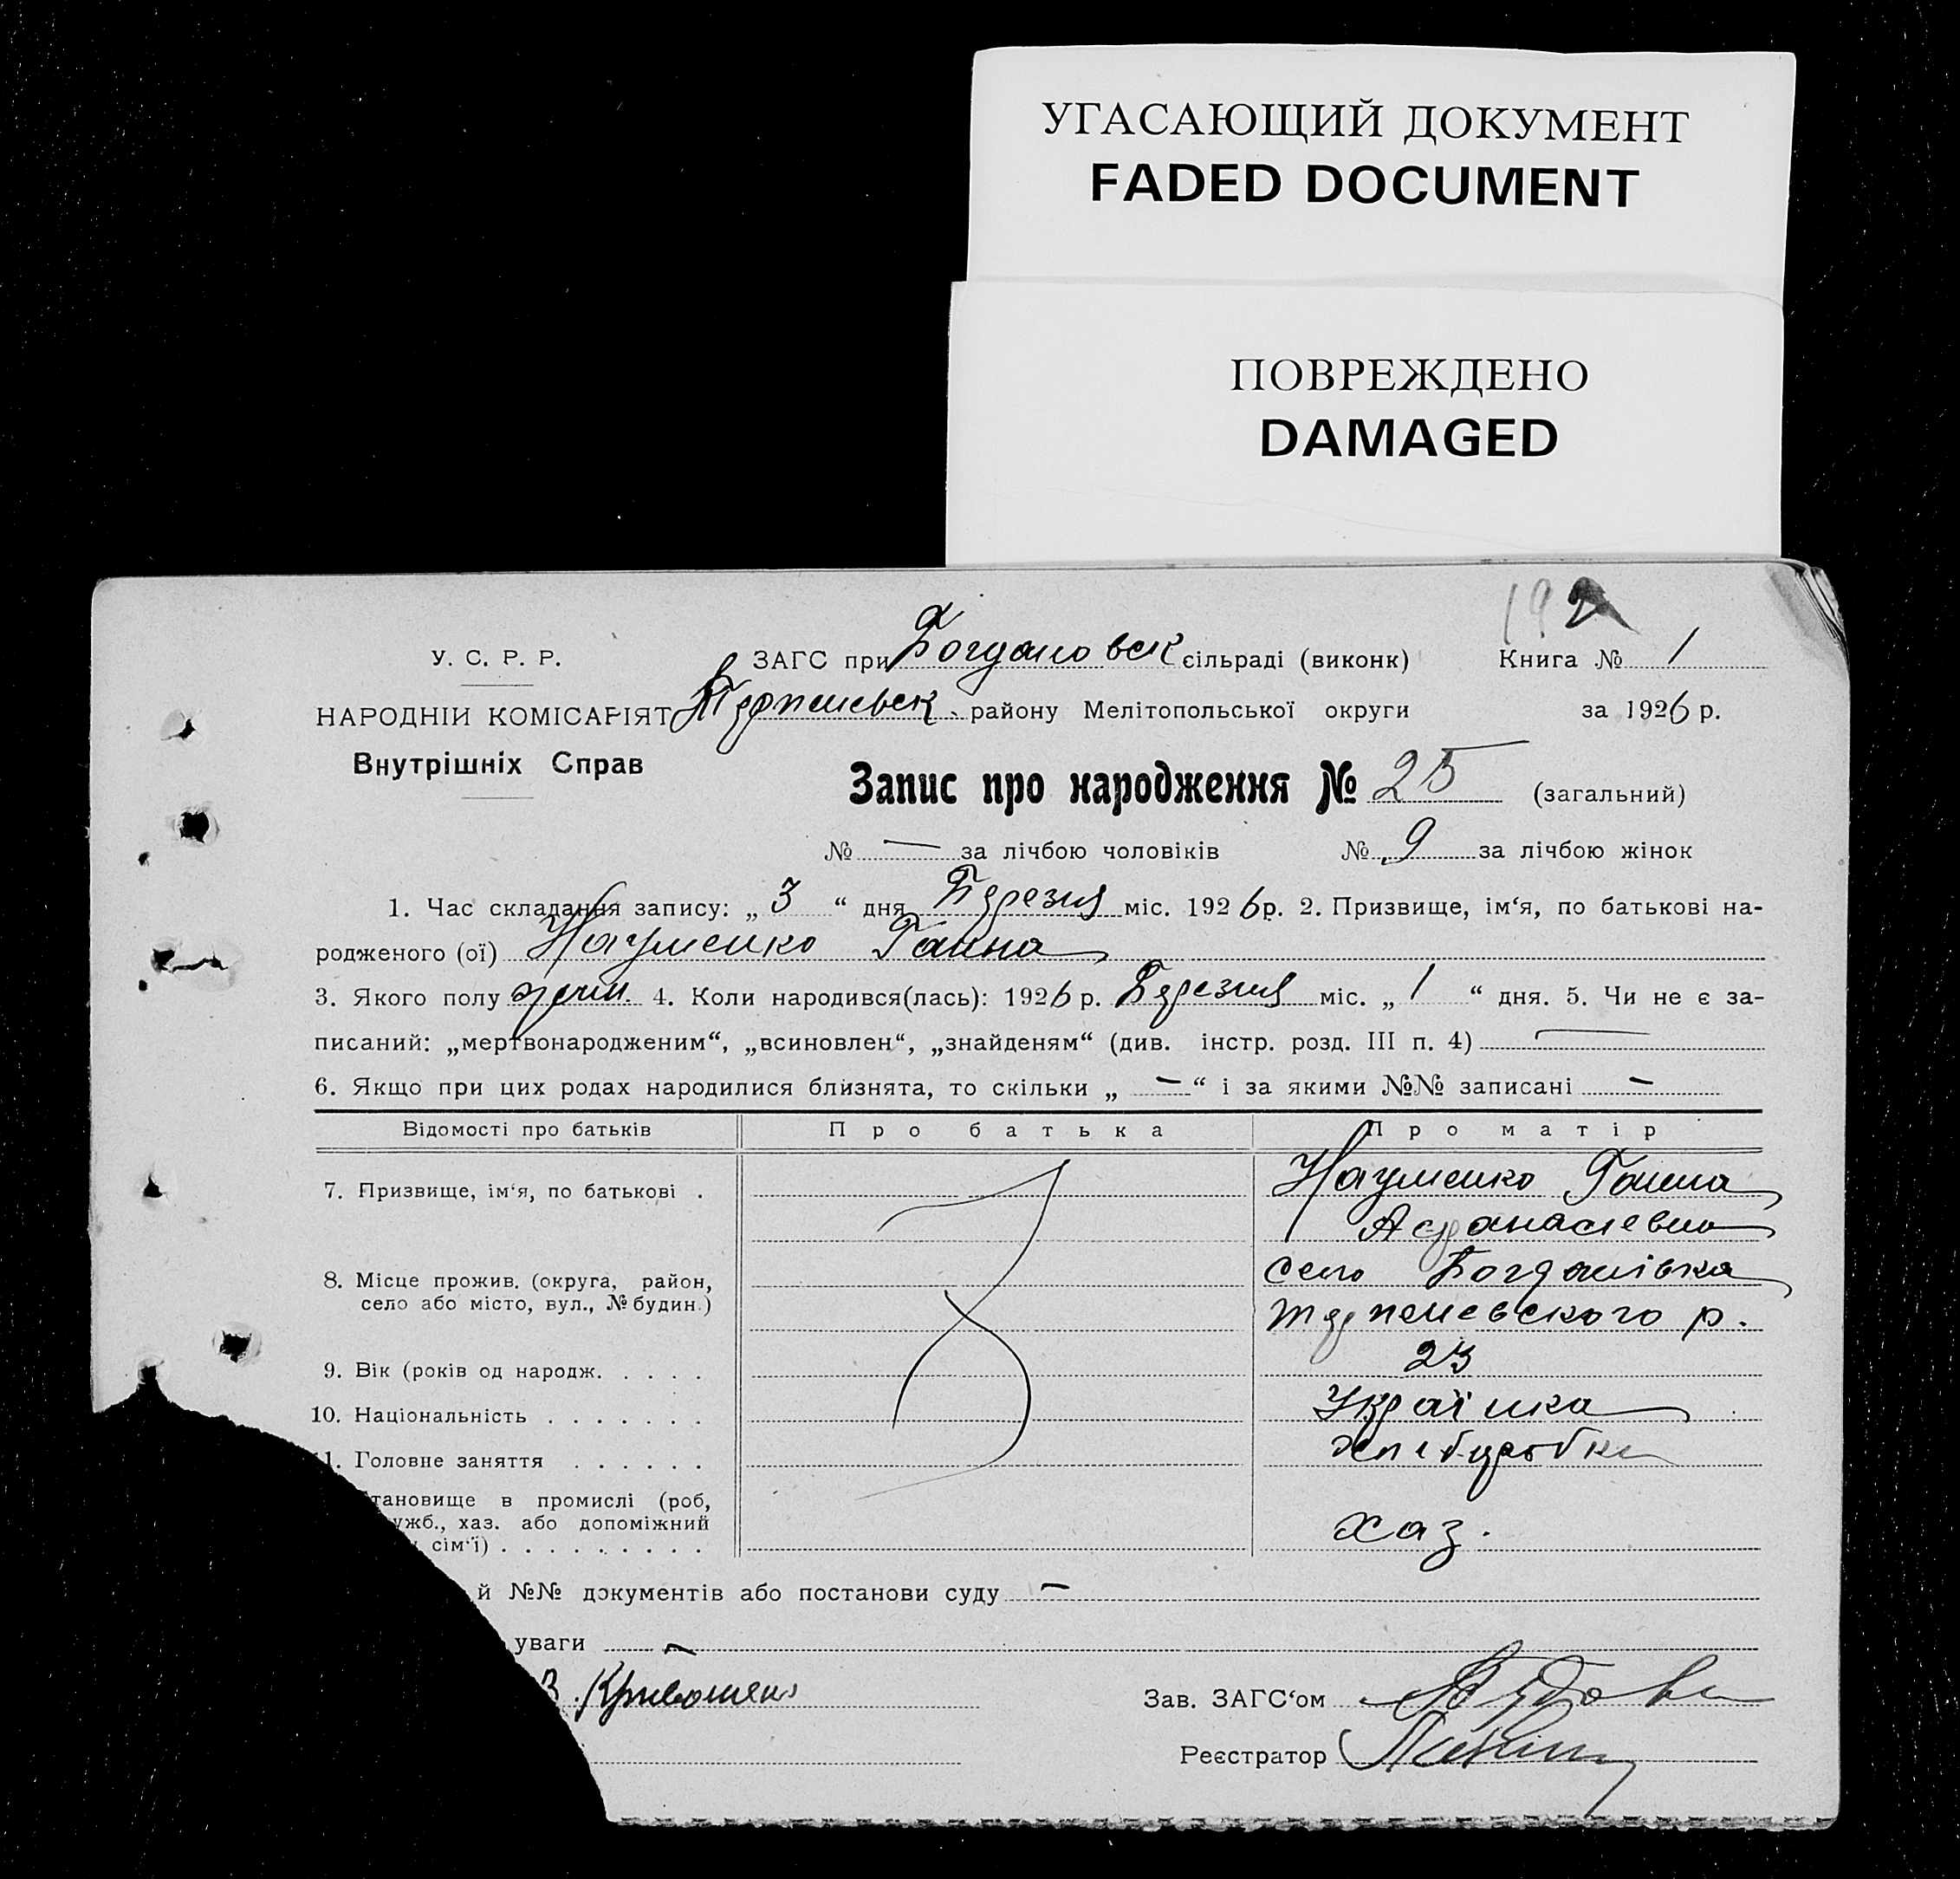 УГАСАЮЩИЙ ДОКУМЕНТ
FADED DOCUMENT
ПОВРЕЖДЕНО
DAMAGED
У. С. Р. Р.
ЗАГС при Богдановск сільраді (виконк)
Книга № 1
НАРОДНІИ КОМІСАРІЯТ
Терпеневск. району Мелітопольської округи
за 1926 р.
Внутрішніх Справ
Запис про народження № 25 (загальний)
№ — за лічбою чоловіків № 9 за лічбою жінок
1. Час складання запису: „ 3 “ дня Березня міс. 1926 р. 2. Призвище, ім‘я, по батькові на-
родженого (ої) Науменко Ганна
3. Якого полу жен. 4. Коли народився(лась): 1926 р. Березня міс. „ 1 “ дня. 5. Чи не є за-
писаний: „мертвонародженим“, „всиновлен“, „знайденям“ (див. інстр. розд. III п. 4) —
6. Якщо при цих родах народилися близнята, то скільки „ — “ і за якими №№ записані —
Відомості про батьків
Про батька
Про матір
7. Призвище, ім‘я, по батькові .
Науменко Ганна
Афанасіевна
8. Місце прожив. (округа, район,
село або місто, вул., № будин.)
село Богданівка
терпеневского р.
9. Вік (років од народж. . . . .
23
10. Національність . . . . . . .
Українка
1. Головне заняття . . . . . .
хліборобка
тановище в промислі (роб,
ужб., хаз. або допоміжний
сім‘ї) . . . . . . . . .
хаз.
й №№ документів або постанови суду —
уваги —
Зав. ЗАГС‘ом
Реєстратор